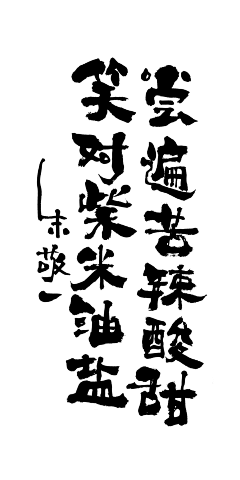 尝遍苦辣酸甜
笑对柴米油盐
朱敬一